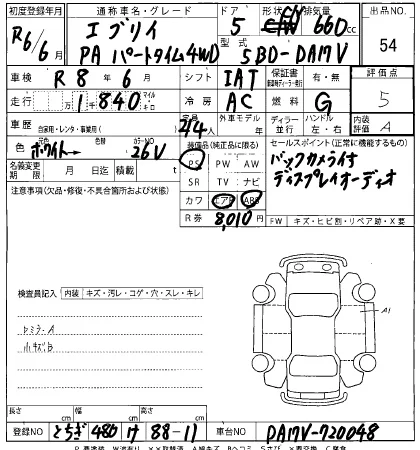 初度登録年月 通称車名・グレード ドア 形状 排気量 出品NO.
R6/6月 エブリイ 5 660cc 54
PA パートタイム4WD 型式 5BD-DA17V
車検 R8年6月 シフト IAT 保証書 有・無 評価点
走行 万1千840 マイル キロ 冷房 AC 燃料 G 5
車歴 自家用・レンタ・事業用( ) 定員 2/4人 外車モデル 年 ディーラー・並行 ハンドル 左・右 内装評価 A
色 ホワイト 色替 カラーNO 26V 装備品(純正品に限る) セールスポイント(正常に機能するもの)
名義変更期限 月 日 積載 t PS PW AW バックカメラ付き
注意事項(欠品・修復・不具合箇所および状態) SR TV ナビ ディスプレイオーディオ
カワ エアB ABS
R券 8,010円 FW キズ・ヒビ割・リペア跡・X要
検査員記入 内装 キズ・汚レ・コゲ・穴・スレ・キレ
A1
ヒミラ-A
小キズB
長さ cm 幅 cm 高さ cm
登録NO とちぎ 480 け 88-11 車台NO DA17V-720048